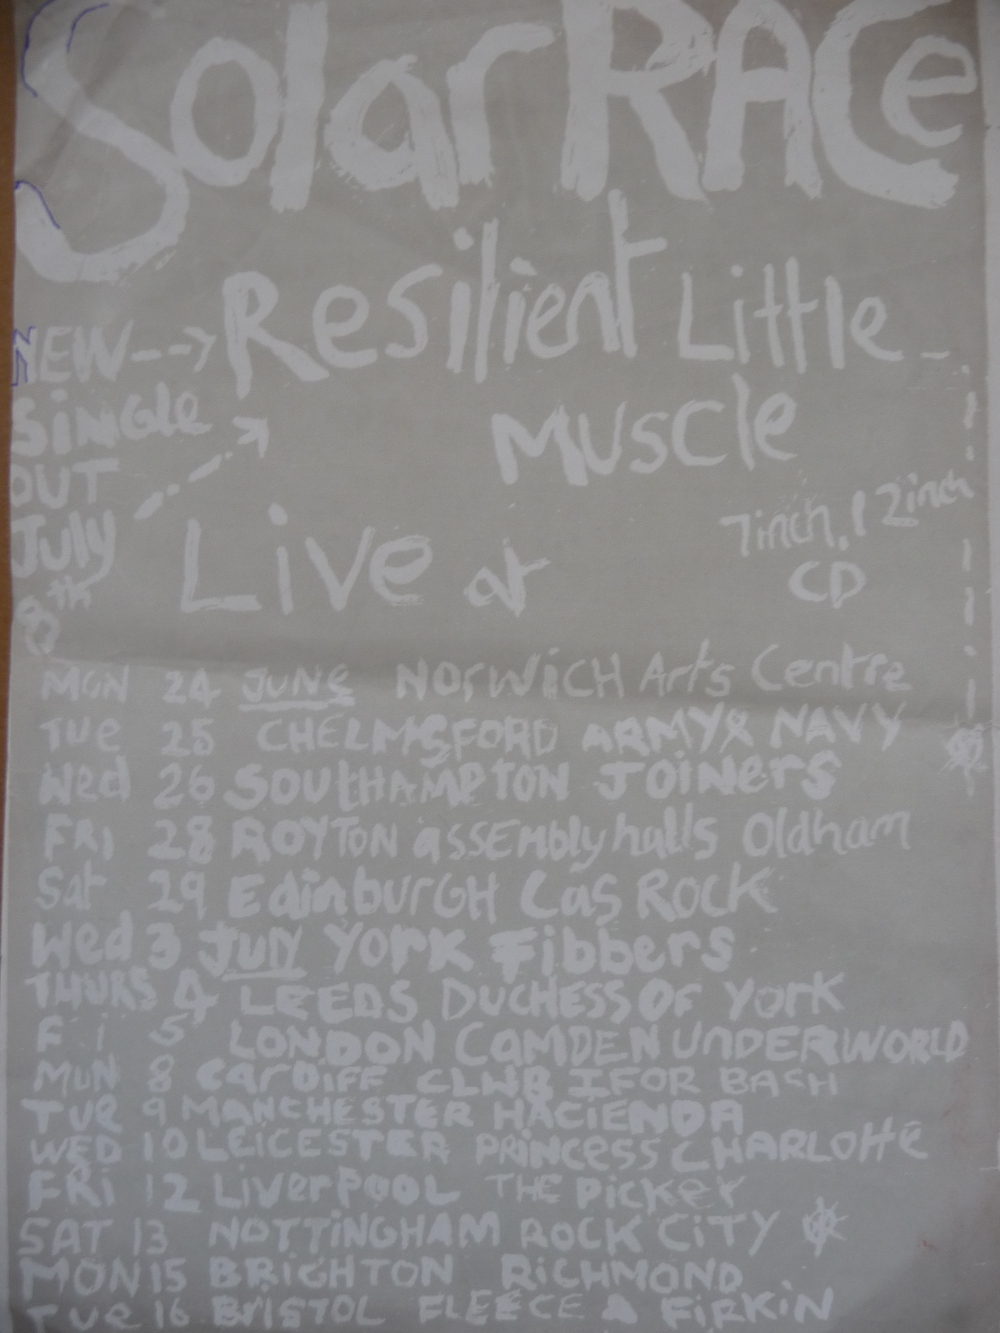 Solar RACe
Resilient Little
NEW-->
Single
Muscle
OUT
July
8th
7inch, 12inch
CD
Live at
MON 24 JUNE NORWICH Arts Centre
TUe 25 CHELMSFORD ARMY & NAVY
Wed 26 SOUtHAMPTON JOiNerS
FRI 28 ROYTON aSSEmbly halls Oldham
Sat 29 EdinburGH Cas ROCK
Wed 3 JULY YOrK Fibbers
THURS 4 LEEDS DUCHESS OF YOrK
Fri 5 LONDON CAMDEN UNDERWORLD
MON 8 CArDIFF CLWB IFOR BACH
TUE 9 MANCHESTER HACIENDA
WED 10 LEICESTER PRINCESS CHARLOttE
FRi 12 LiVerPOOL THE PiCKeY
SAT 13 NOTTINGHAM ROCK CiTY
MON 15 BRIGHTON RiCHMOND
TUe 16 BRISTOL FLEECE & FiRKiN